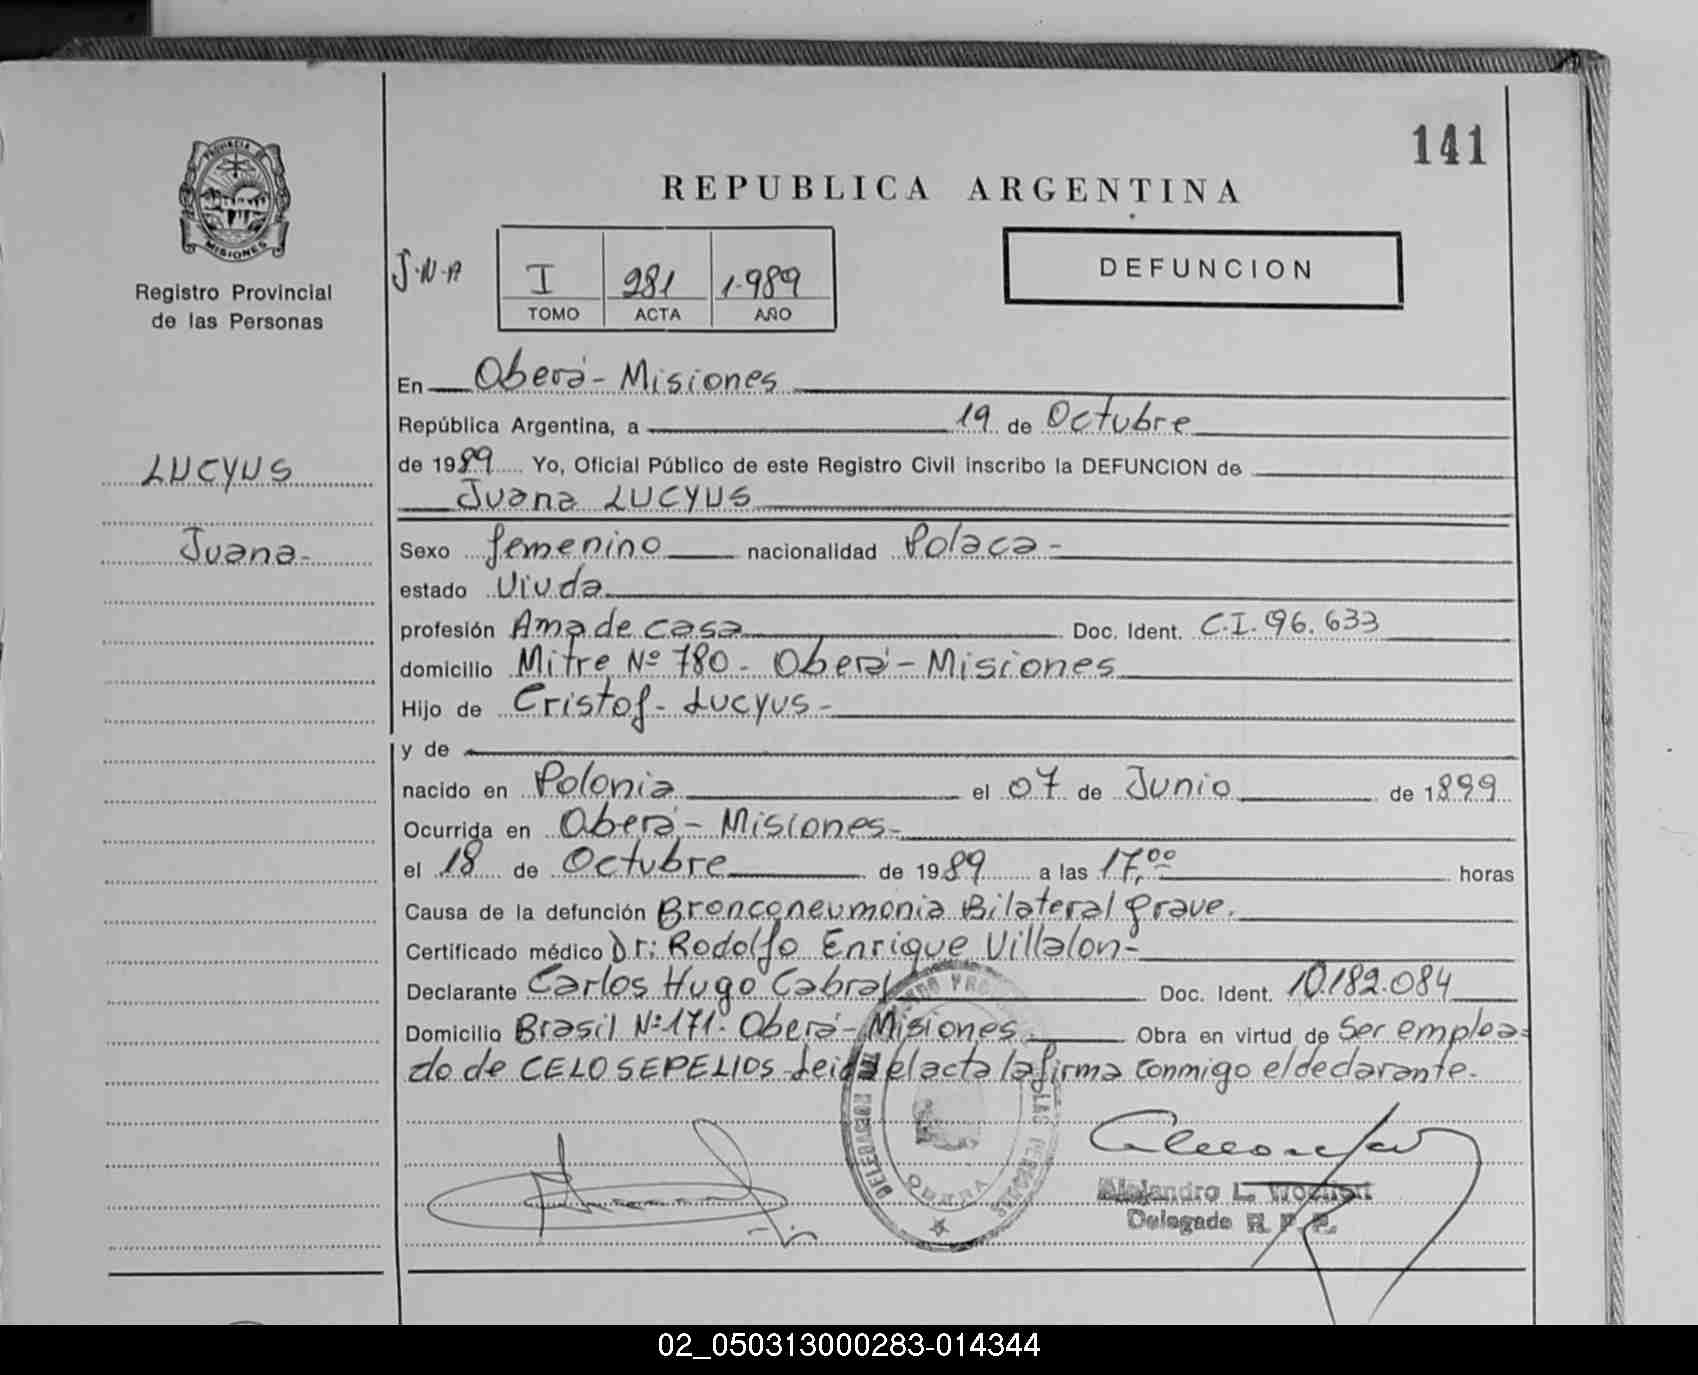 141
REPUBLICA ARGENTINA
PROVINCIA DE
MISIONES
Registro Provincial
de las Personas
J.N.A
I 281 1.989
TOMO ACTA AÑO
DEFUNCION
En Oberá - Misiones
República Argentina, a 19 de Octubre
de 1989 Yo, Oficial Público de este Registro Civil inscribo la DEFUNCION de
LUCYUS
Juana LUCYUS
Juana-
Sexo femenino nacionalidad Polaca -
estado Viuda
profesión Ama de casa Doc. Ident. C.I. 96.633
domicilio Mitre Nº 780 - Oberá - Misiones
Hijo de Cristof - Lucyus -
y de
nacido en Polonia el 07 de Junio de 1899
Ocurrida en Oberá - Misiones -
el 18 de Octubre de 1989 a las 17,00 horas
Causa de la defunción Bronconeumonia Bilateral grave.
Certificado médico Dr: Rodolfo Enrique Villalon -
Declarante Carlos Hugo Cabral Doc. Ident. 10.182.084
Domicilio Brasil Nº 171 - Oberá - Misiones Obra en virtud de Ser emplea-
do de CELO SEPELIOS - Leida el acta la firma conmigo el declarante.
OBERA
Alejandro L.
Delegado R. P. P.
02_050313000283-014344